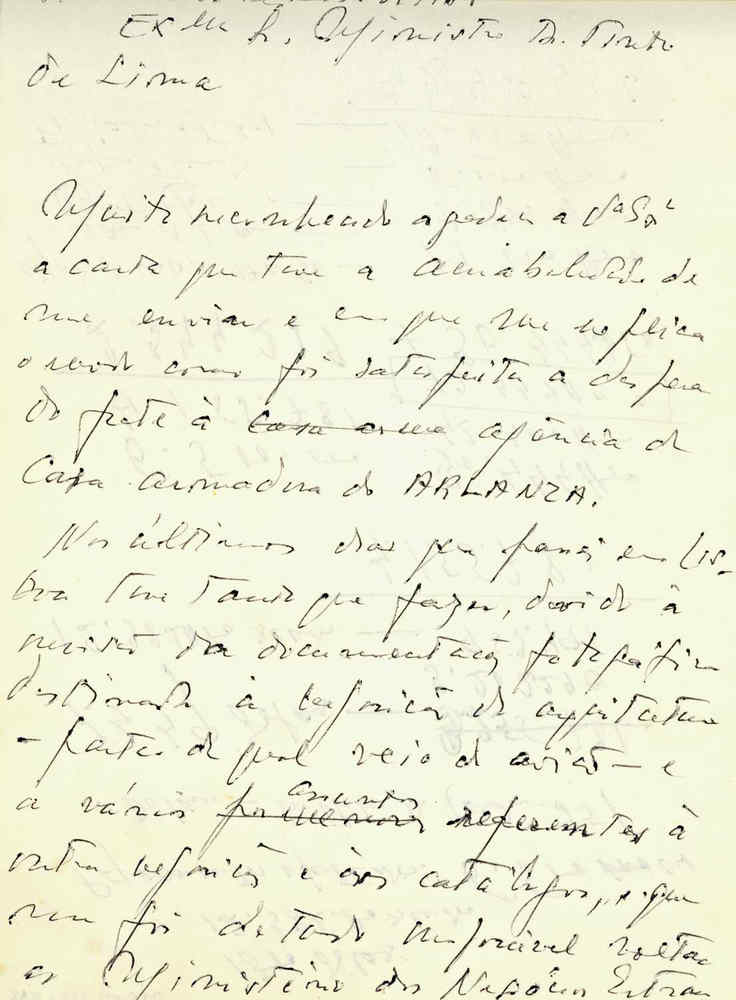 Exmo Sr. Ministro Dr. Pinto
de Lima
Muito reconhecido agradeço a Va Exa
a carta que teve a amabilidade de
me enviar e em que me explica
o modo como foi satisfeita a despesa
do frete à casa arma agência da
Casa armadora do ARLANZA.
Nos últimos dias que passei em Lis-
boa tive tanto que fazer, devido à
revisão da documentação fotográfica
destinada à exposição de arquitectura
– parte da qual veio de avião – e
a vários pormenores assuntos referentes à
outra exposição e aos catálogos, que
me foi de todo impossível voltar
ao Ministério dos Negócios Estran